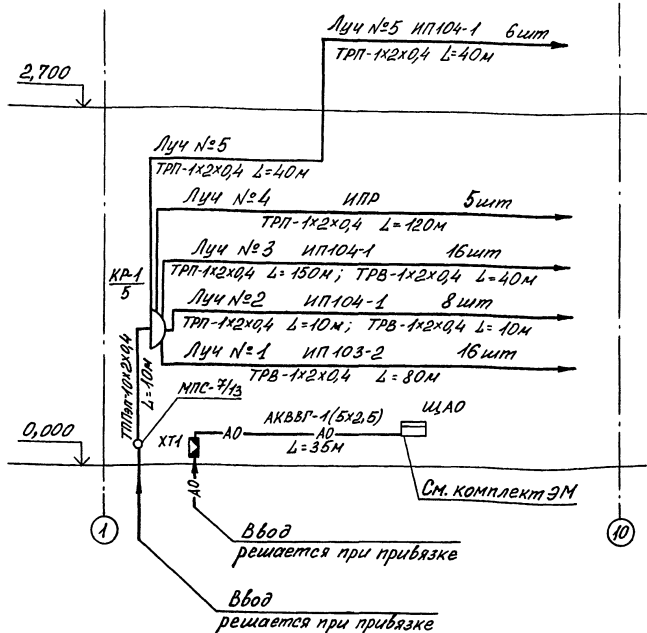 Луч №5 ИП104-1 6шт
ТРП-1х2х0,4 L=40м
2,700
Луч №5
ТРП-1х2х0,4 L=40м
Луч №4 ИПР 5шт
ТРП-1х2х0,4 L=120м
Луч №3 ИП104-1 16шт
ТРП-1х2х0,4 L=150м; ТРВ-1х2х0,4 L=40м
КР-1
5
Луч №2 ИП104-1 8шт
ТРП-1х2х0,4 L=10м; ТРВ-1х2х0,4 L=10м
Луч №1 ИП103-2 16шт
ТРВ-1х2х0,4 L=80м
ТППэп-10х2х0,4
L=10м
МПС-7/13
0,000
ХТ1
АКВВГ-1(5х2,5)
ЩАО
АО АО
L=35м
АО
См. комплект ЭМ
1
10
Ввод
решается при привязке
Ввод
решается при привязке